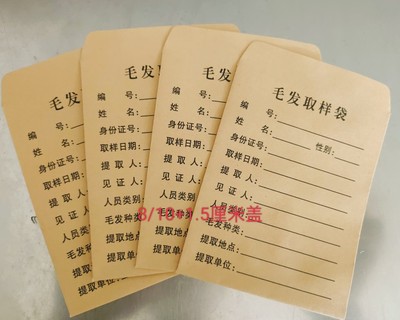 毛发
编 号:
姓 名:
身份证号:
取样日期:
提 取 人:
见 证 人:
人员类别:
毛发种类:
提取地点:
提取单位:
毛发取
编 号:
姓 名:
身份证号:
取样日期:
提 取 人:
见 证 人:
人员类别:
毛发种类:
提取地点:
提取单位:
毛发取
编 号:
姓 名:
身份证号:
取样日期:
提 取 人:
见 证 人:
人员类别:
毛发种类:
提取地点:
提取单位:
毛发取样袋
编 号:
姓 名:
身份证号: 性别:
取样日期:
提 取 人:
见 证 人:
人员类别:
毛发种类:
提取地点:
提取单位:
8/10+1.5厘米盖